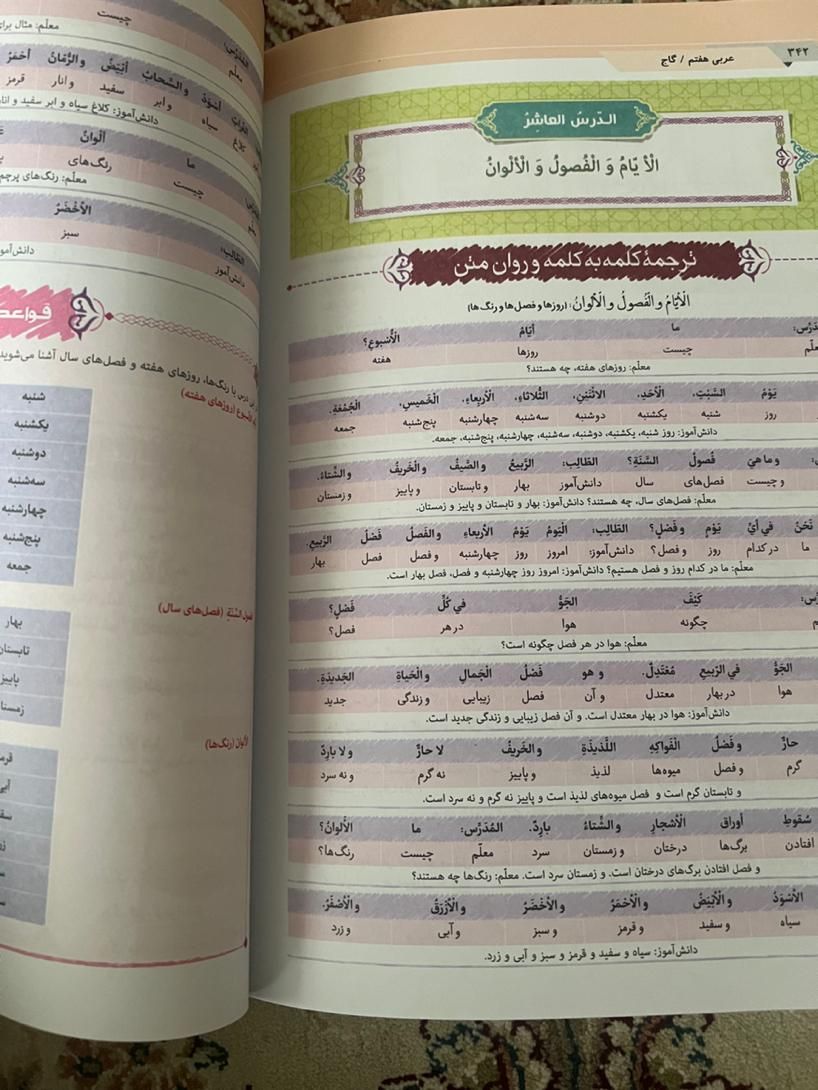 ۳۴۲
عربی هفتم / گاج
الدّرسُ العاشِرُ
الْأَیّامُ وَ الْفُصولُ وَ الْألْوانُ
ترجمهٔ کلمه به کلمه و روان متن
الْأیّامُ و الْفُصولُ و الْألْوانُ: (روزها و فصل‌ها و رنگ‌ها)
ما أیّامُ الْأُسْبوعِ؟
چیست روزها هفته
معلّم: روزهای هفته، چه هستند؟
یَوْمُ السَّبْتِ، الْأَحَدِ، الاثْنَیْنِ، الثُّلاثاءِ، الْأرْبِعاءِ، الْخَمیسِ، الْجُمُعَةِ.
روز شنبه یکشنبه دوشنبه سه‌شنبه چهارشنبه پنج‌شنبه جمعه
دانش‌آموز: روز شنبه، یکشنبه، دوشنبه، سه‌شنبه، چهارشنبه، پنج‌شنبه، جمعه.
و ما هیَ فُصولُ السَّنَةِ؟ الطّالِب: الرَّبیعُ و الصَّیْفُ و الْخَریفُ و الشِّتاءُ.
و چیست فصل‌های سال دانش‌آموز بهار و تابستان و پاییز و زمستان
معلّم: فصل‌های سال، چه هستند؟ دانش‌آموز: بهار و تابستان و پاییز و زمستان.
نَحْنُ في أيِّ یَوْمٍ و فَصْلٍ؟ الطّالِب: الْیَوْمُ یَوْمُ الأربعاءِ و الفَصلُ فَصْلُ الرَّبیعِ.
ما در کدام روز و فصل؟ دانش‌آموز: امروز روز چهارشنبه و فصل فصل بهار
معلّم: ما در کدام روز و فصل هستیم؟ دانش‌آموز: امروز روز چهارشنبه و فصل، فصل بهار است.
کَیْفَ الجَوُّ في کُلِّ فَصْلٍ؟
چگونه هوا در هر فصل؟
معلّم: هوا در هر فصل چگونه است؟
الجَوُّ في الرّبیعِ مُعْتَدِلٌ. و هو فَصْلُ الْجَمالِ و الْحَیاةِ الجَدیدَةِ.
هوا در بهار معتدل و آن فصل زیبایی و زندگی جدید
دانش‌آموز: هوا در بهار معتدل است. و آن فصل زیبایی و زندگی جدید است.
حارٌّ و فَصْلُ الْفَواکِهِ اللَّذیذَةِ و الخَریفُ لا حارٌّ و لا بارِدٌ
گرم و فصل میوه‌ها لذیذ و پاییز نه گرم و نه سرد
و تابستان گرم است و فصل میوه‌های لذیذ است و پاییز نه گرم و نه سرد است.
سُقوطِ أوراق الْأشجارِ و الشِّتاءُ بارِدٌ. المُدَرِّس: ما الْألْوانُ؟
افتادن برگ‌ها درختان و زمستان سرد معلّم چیست رنگ‌ها؟
و فصل افتادن برگ‌های درختان است. و زمستان سرد است. معلّم: رنگ‌ها چه هستند؟
الأسْوَدُ و الْأبْیَضُ و الْأحْمَرُ و الْأخْضَرُ و الْأزْرَقُ و الْأصْفَرُ.
سیاه و سفید و قرمز و سبز و آبی و زرد
دانش‌آموز: سیاه و سفید و قرمز و سبز و آبی و زرد.
چیست
معلّم
أسْوَدُ و السَّحابُ أبْیَضُ و الرُّمّانُ أحْمَرُ
کلاغ سیاه و ابر سفید و انار قرمز
دانش‌آموز: کلاغ سیاه و ابر سفید و
ما ألْوانُ
چیست رنگ‌های
معلّم: رنگ‌های پرچم
الطّالِبُ: الأخْضَرُ
دانش‌آموز سبز
شنبه
یکشنبه
دوشنبه
سه‌شنبه
چهارشنبه
پنج‌شنبه
جمعه
(فصل‌های سال)
بهار
پاییز
(رنگ‌ها)